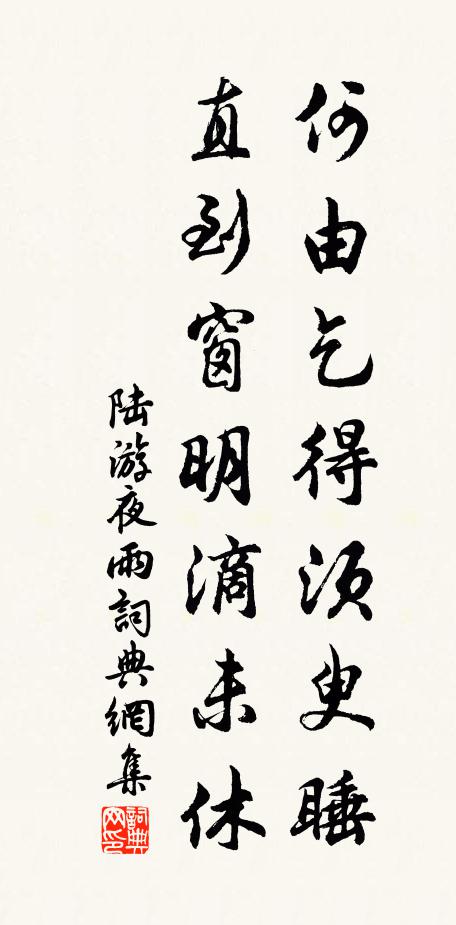 何由乞得須臾睡
直到窗明滴未休
陆游夜雨詞典網集
詞典网印